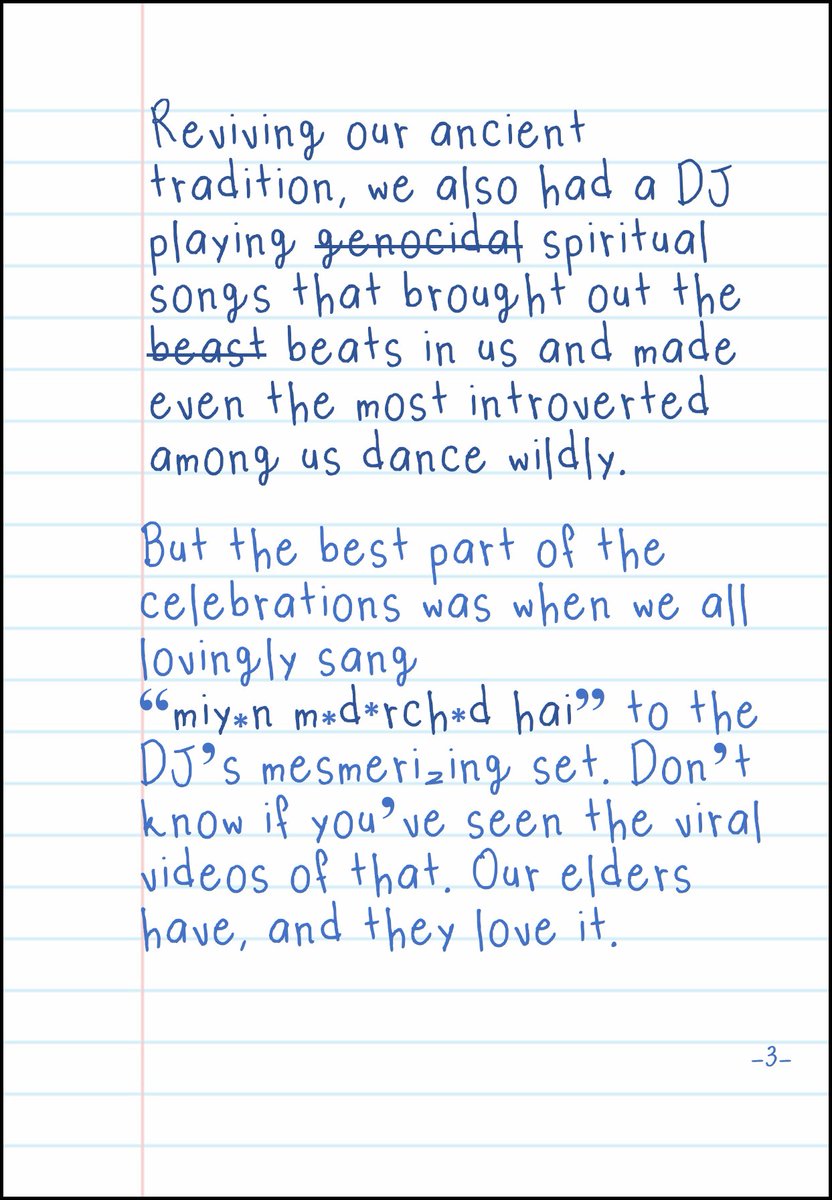 Reviving our ancient
tradition, we also had a DJ
playing genocidal spiritual
songs that brought out the
beast beats in us and made
even the most introverted
among us dance wildly.
But the best part of the
celebrations was when we all
lovingly sang
“miy*n m*d*rch*d hai” to the
DJ’s mesmerizing set. Don’t
know if you’ve seen the viral
videos of that. Our elders
have, and they love it.
-3-